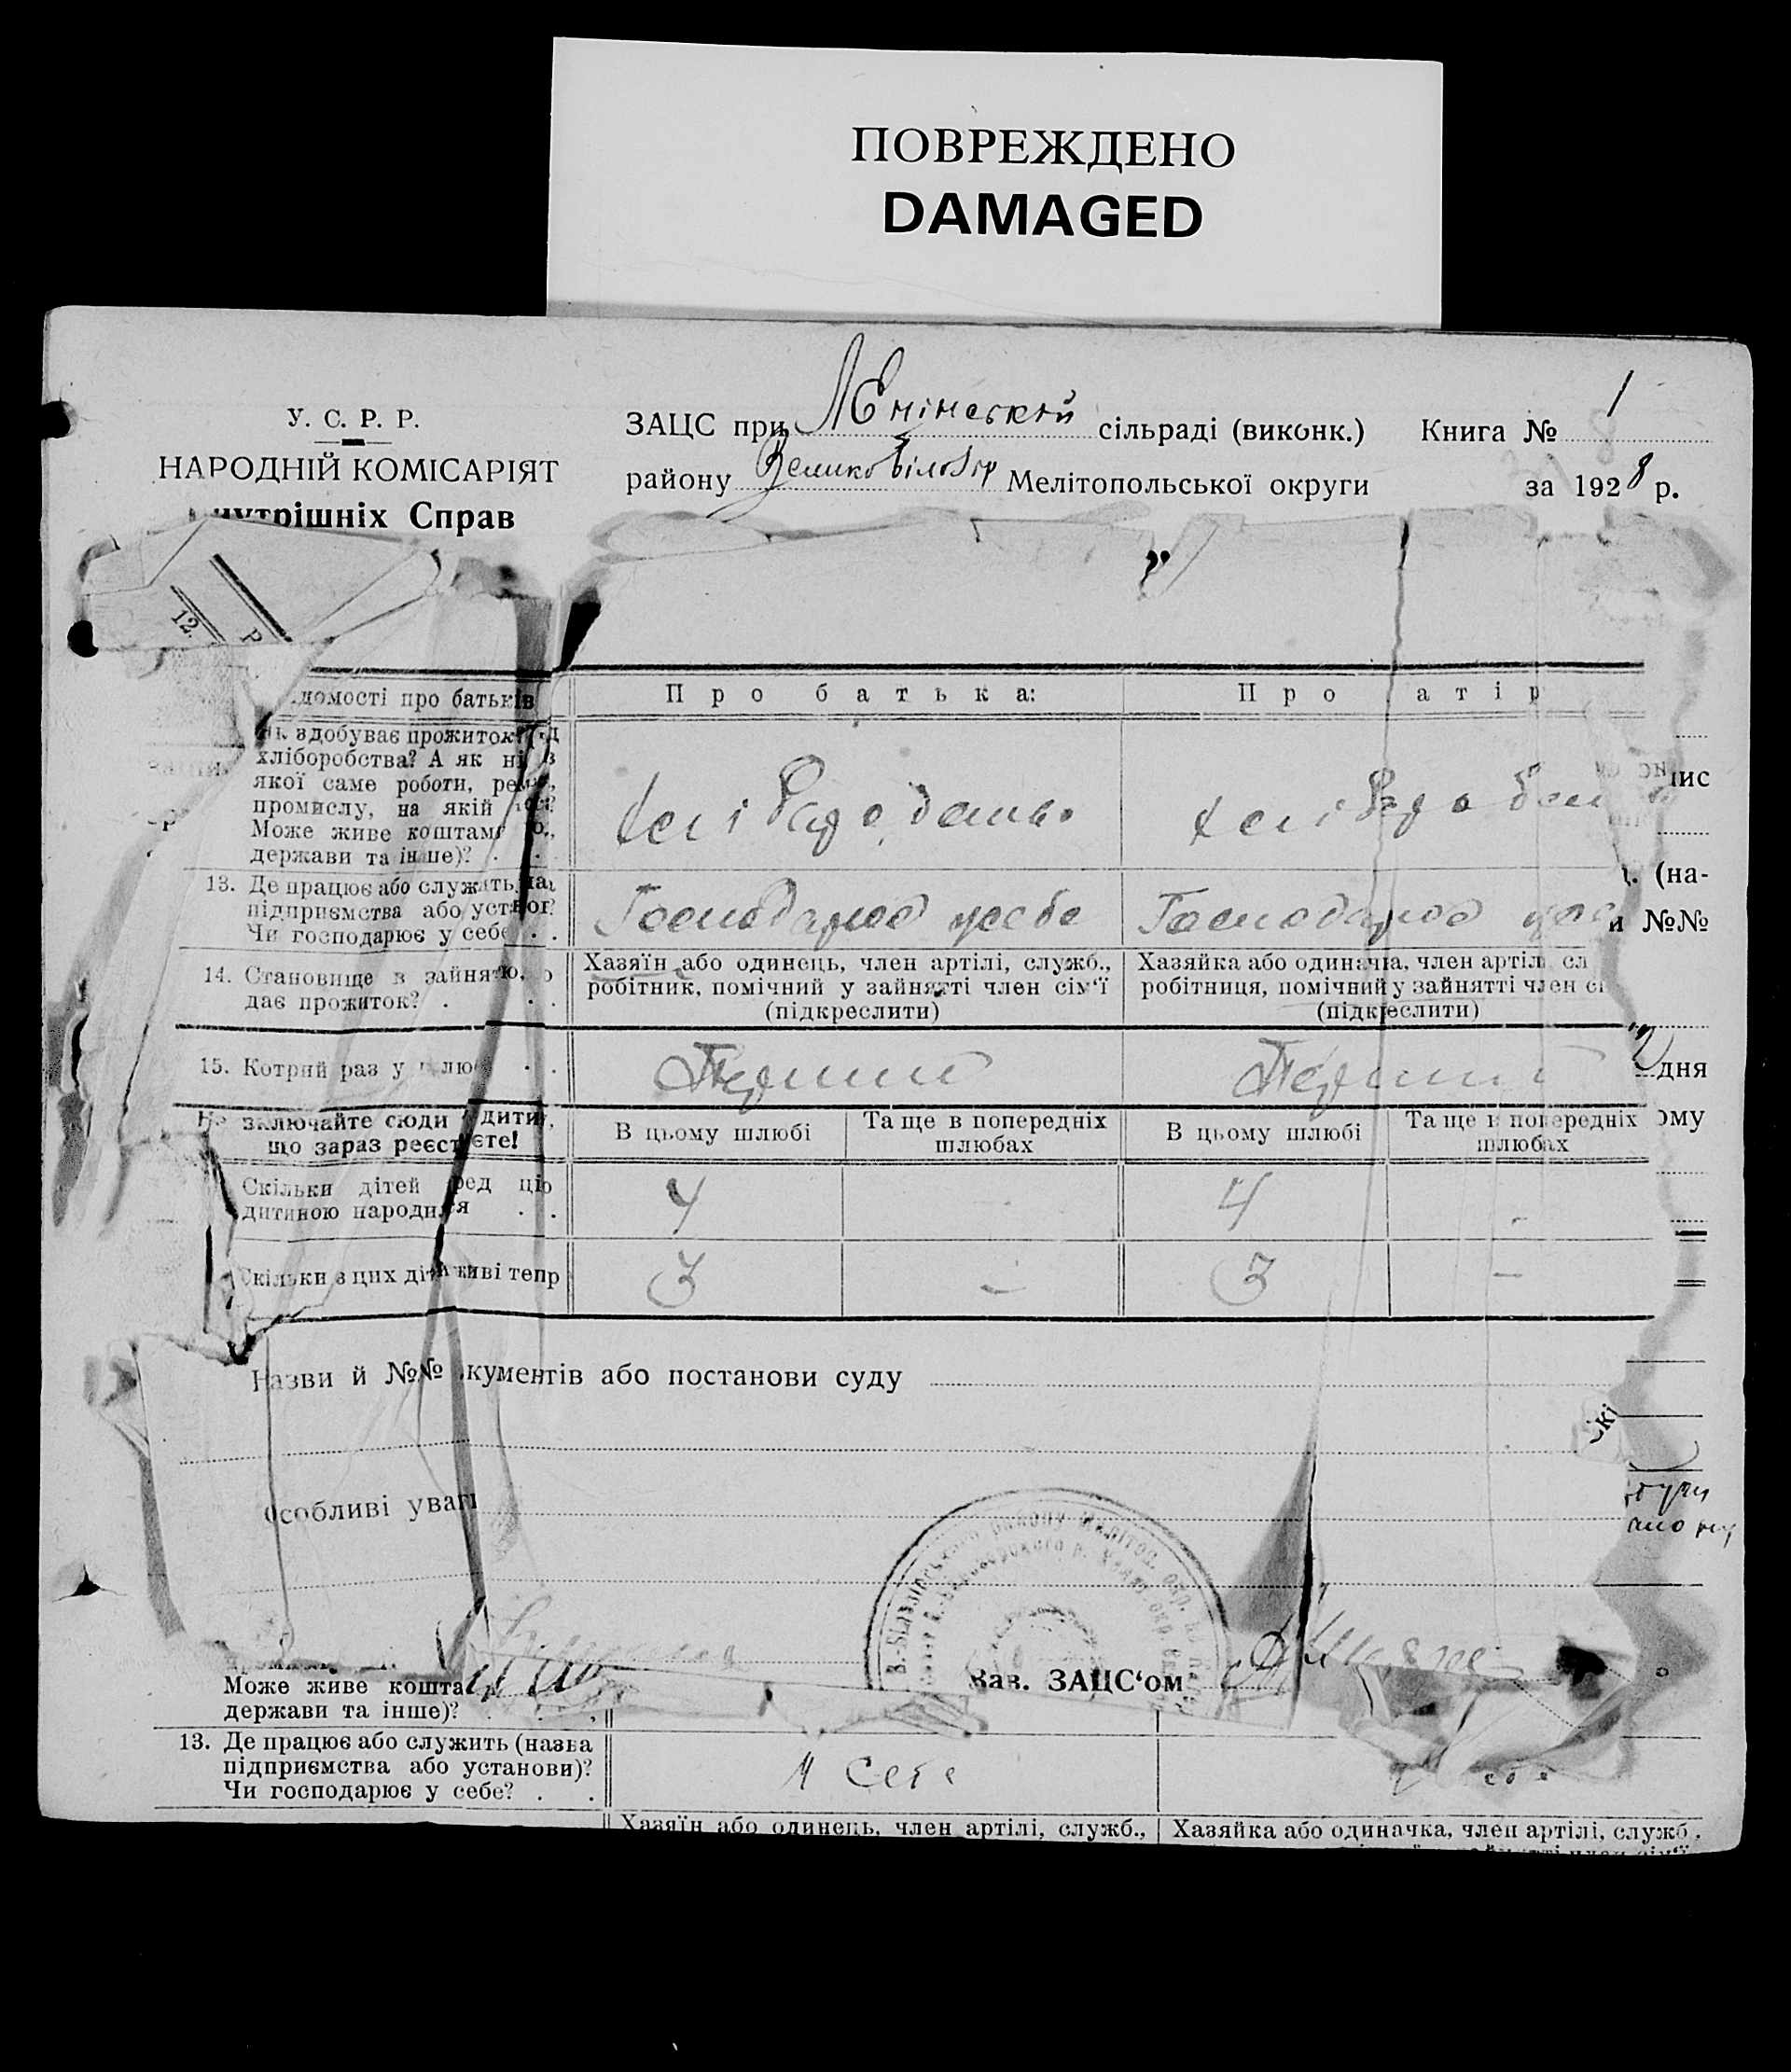 ПОВРЕЖДЕНО
DAMAGED
У. С. Р. Р.
НАРОДНІЙ КОМІСАРІЯТ
нутрішніх Справ
ЗАЦС при Ленінській сільраді (виконк.) Книга № 1
району Великобілозір Мелітопольської округи за 1928 р.
12.
Р
домості про батьків
П р о б а т ь к а:
П р о атір
як здобуває прожиток?
хліборобства? А як ні, з
якої саме роботи, ре
промислу, на якій
Може живе коштам
держави та інше)? .
хліборобство
хлібороб
ис
13. Де працює або служить на
підприємства або устан
Чи господарює у себе . .
Господарює у себе
Господарює
(на-
и №№
14. Становище в зайнятю,
дає прожиток? . . .
Хазяїн або одинець, член артілі, служб.,
робітник, помічний у зайнятті член сім'ї
(підкреслити)
Хазяйка або одиначка, член артіл сл
робітниця, помічний у зайнятті член сі
(підкреслити)
15. Котрий раз у шлюб . .
Перший
Перший
дня
ому
Не включайте сюди дити,
що зараз реєструєте!
В цьому шлюбі
Та ще в попередніх
шлюбах
В цьому шлюбі
Та ще в попередніх
шлюбах
Скільки дітей ред цію
дитиною народилися . .
4
-
4
-
Скільки з цих дітей живі тепр
3
—
3
—
Назви й №№ кументів або постанови суду
Особливі уваги
Зав. ЗАЦС‘ом
Може живе кошта
держави та інше)? . . ,
13. Де працює або служить (назва
підприємства або установи)?
Чи господарює у себе? . .
У себе
Хазяїн або одинець, член артілі, служб.,
Хазяйка або одиначка, член артілі, служб.,